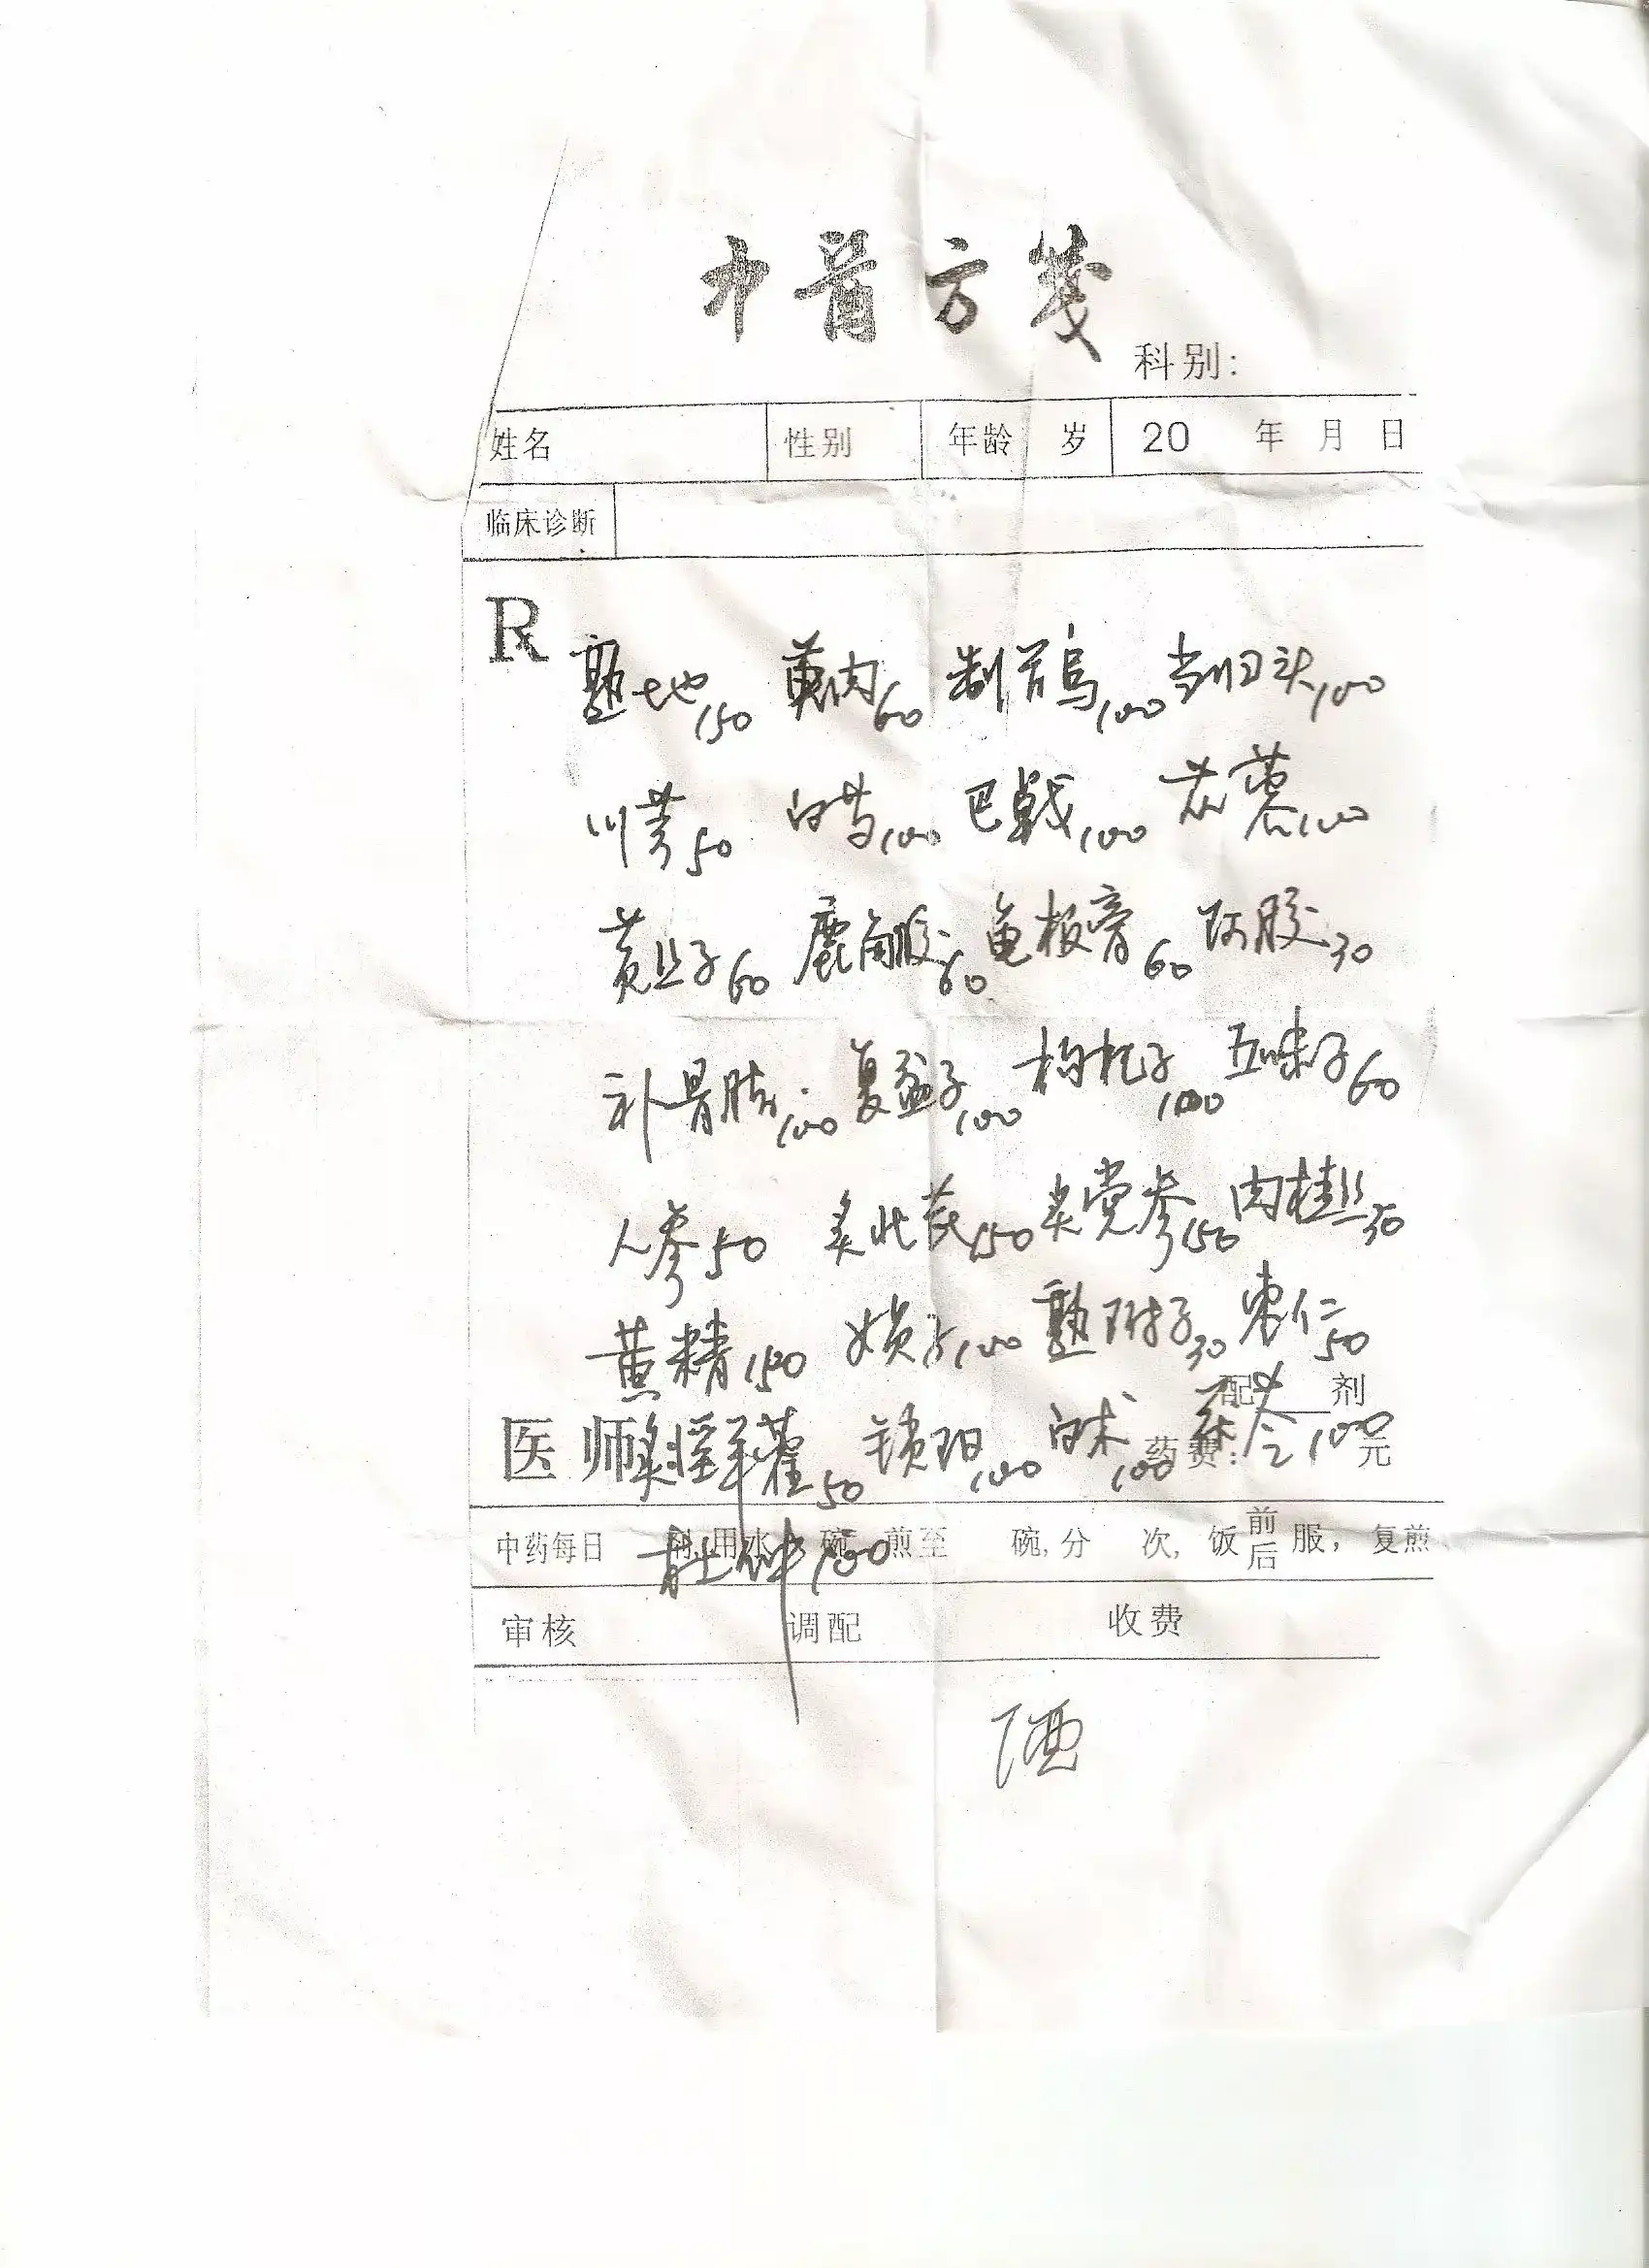 中医方笺
科别:
姓名 性别 年龄 岁 20 年 月 日
临床诊断
R
熟地150 萸肉60 制首乌100 当归头100
川芎50 白芍100 巴戟100 苁蓉100
黄丝子60 鹿角胶60 龟板膏60 阿胶30
补骨脂100 复盆子100 枸杞子100 五味子60
人参50 炙北芪150 炙党参150 肉桂30
黄精150 女贞子100 熟附子30 枣仁50
配 剂
医师 炙淫羊藿50 锁阳100 白术100 茯苓100
药费: 元
中药每日 剂,用水 碗 煎至 碗,分 次,饭前后服,复煎
杜仲100
审核 调配 收费